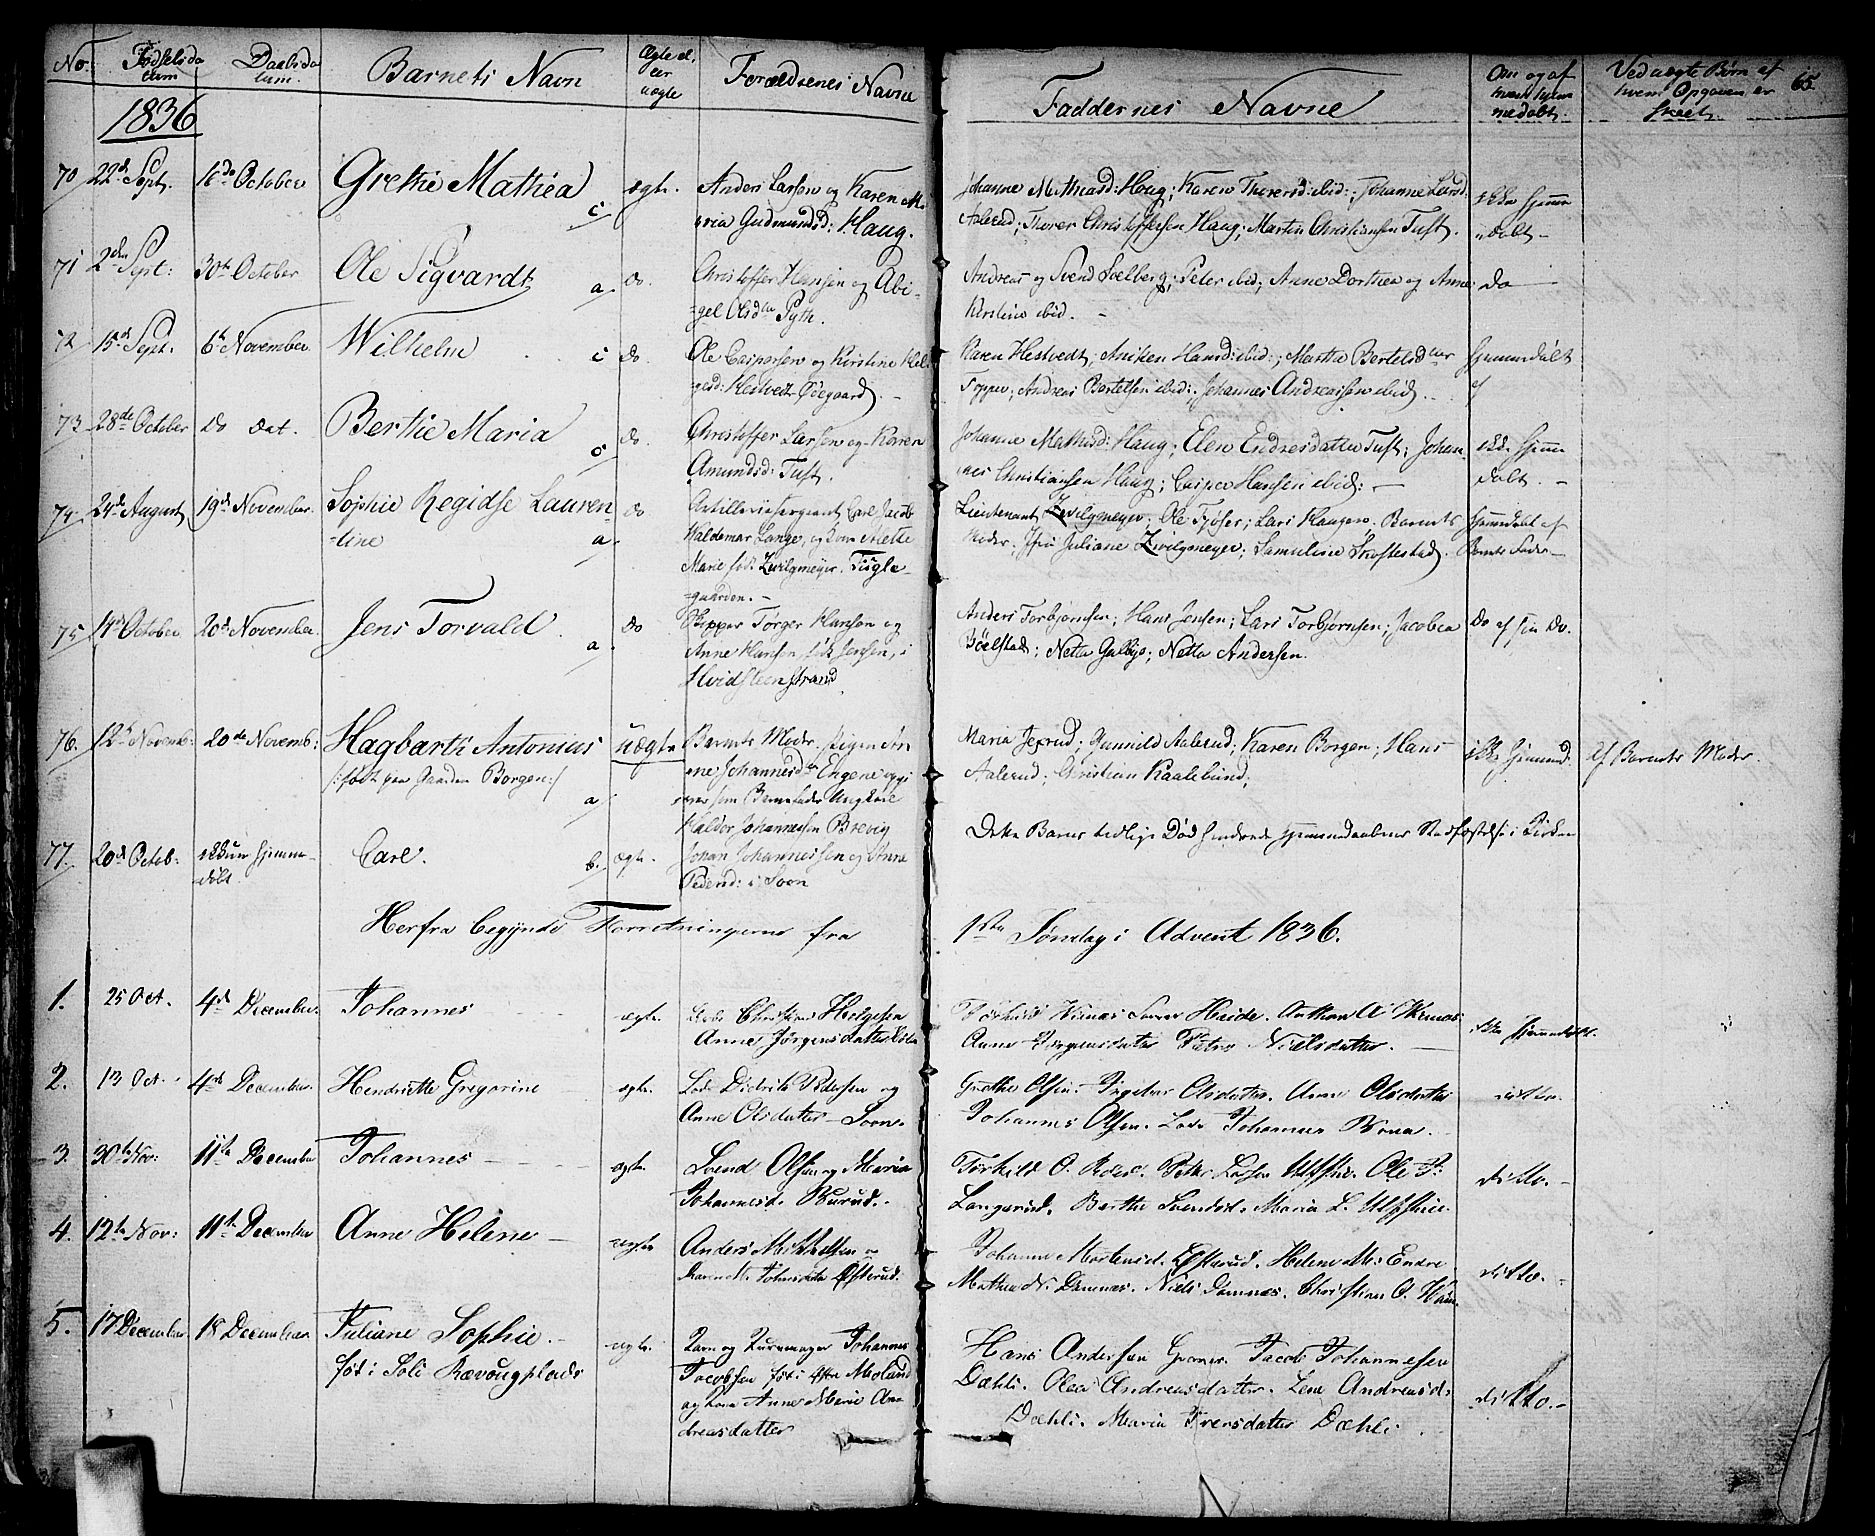 No. Fødselsda Daabsda Barnets Navn Ægte el. Forældrenes Navne Faddernes Navne Om og af Ved uægte Børn af 65
tum tum. uægte hvem Opgaven er
1836 skeet.
70 22d Sept. 16de October Grethe Mathea c ægte. Anders Larsen og Karen Ma-
ria Gudmundsd: Haug.
Johanne Mathiasd: Haug; Karen Thorersd: ibid:; Johanne Larsd.
Aalerud; Thorer Christoffersen Haug; Martin Christiansen Tuft.
ikke hjemme
døbt
71 2den Sept: 30te October Ole Sigvardt a. do. Christoffer Hansen og Abi-
gel Olsdtr
Andreas og Svend Soelberg; Peter ibid; Anne Dorthea og Anne
Kirstine ibid.
do
72 15de Sept. 6te November Wilhelm c do. Ole Caspersen og Kirstine Hel-
gesd: Hestvedt
Karen Hestvedt; Aniken Hansd: ibid:; Marthe Bertelsdatter
Toppen; Andreas Bertelsen ibid:; Johannes Andreassen ibid.
hjemmedøbt
af
73 28de October do dat. Berthe Maria c do. Christoffer Larsen og Karen
Amundsd: Tuft.
Johanne Mathisd: Haug; Elen Endresdatter Tuft; Johan-
nes Christiansen Haug; Casper Hansen ibid:
ikke hjemme
døbt.
74 24de August 19de November. Sophie Regidse Lauren-
tine a. do Artilleriesergeant Carl Jacob
Waldemar Lange, og Kone Alette
Marie født Zwilgmeyer. Tegle-
gaarden.
Lieutenant Zwilgmeyer; Ole Tjøser; Lars Haugen. Barnets
Moder; Juliane Zwilgmeyer; Samuline Skoftestad.
hjemdøbt af
Barnets Fader
75 14de October 20de November. Jens Torvald a. do Skipper Tørger Hansen og
Anne Hansen, født Jensen, i
Hvidsteenstrand
Anders Torbjørnsen; Hans Jensen; Lars Torbjørnsen; Jacobea
Bøelstad; Netta Galbye; Netta Andersen.
do af do.
76. 12te Novemb: 20de Novemb: Hagbarth Antonius
/:født paa Gaarden Borgen:/ a uægte Barnets Moder, Pigen An-
ne Johannesdtr Engene opgi-
ver som Barnefader Ungkarl
Haldor Johannessen Brevig
Maria Jexrud; Gunnild Aalerud; Karen Borgen; Hans
Aalerud; Christian Kaalelund;
ikke hjemmed: Af Barnets Moder.
77. 20de Octob: ikkun hjemme-
døbt. Carl. b. ægte. Johan Johannessen og Anne
Pedersd: i Soon
Dette Barns tidlige Død hindrede Hjemmedaabens Stadfæstelse i Kirken
Herfra begynde Forretningerne fra 1ste Søndag i Advent 1836.
1. 25 Oct. 4de December. Johannes ægte. Christian Helgesen
Anne Jørgensdatter
Anne Jørgensdatter Petra Nielsdatter.
ikke hjemmedøbt.
2. 13 Oct. 4de December. Hendriette Gregorine ægte. Lods Didrik Pedersen og
Anne Olsdatter Soon.
Grethe Olsen. Ingebor Olsdatter. Anne Olsdatter
Johannes Olsen. Lods Johannes
ditto.
3. 30te Nov: 11te December Johannes ægte. Svend Olsen og Maria
Johannesd. Burud.
Torkild O. Peter Larsen Ulfshie. Ole P:
Langerud. Berthe Svendsd. Maria L. Ulfshie.
ditto.
4. 12te Nov: 11te December Anne Helene ægte Anders Mikkelsen og
Karen M. Johnsdtr Østerud.
Johanne Mortensd. Østerud. Helene M: Endre
Mathea N: Damnæs. Niels Damnæs. Christian O.
ditto.
5. 17 December. 18 December. Juliane Sophie
føt i Soli Rævougplads ægte. Johannes
Jacobsen føt i
og Kone Anne Marie An-
dreasdatter
Hans Andersen Jacob Johannesen
Dæhli. Olea Andreasdatter. Lene Andreasd.
Dæhli. Maria Iversdatter Dæhli.
ditto.